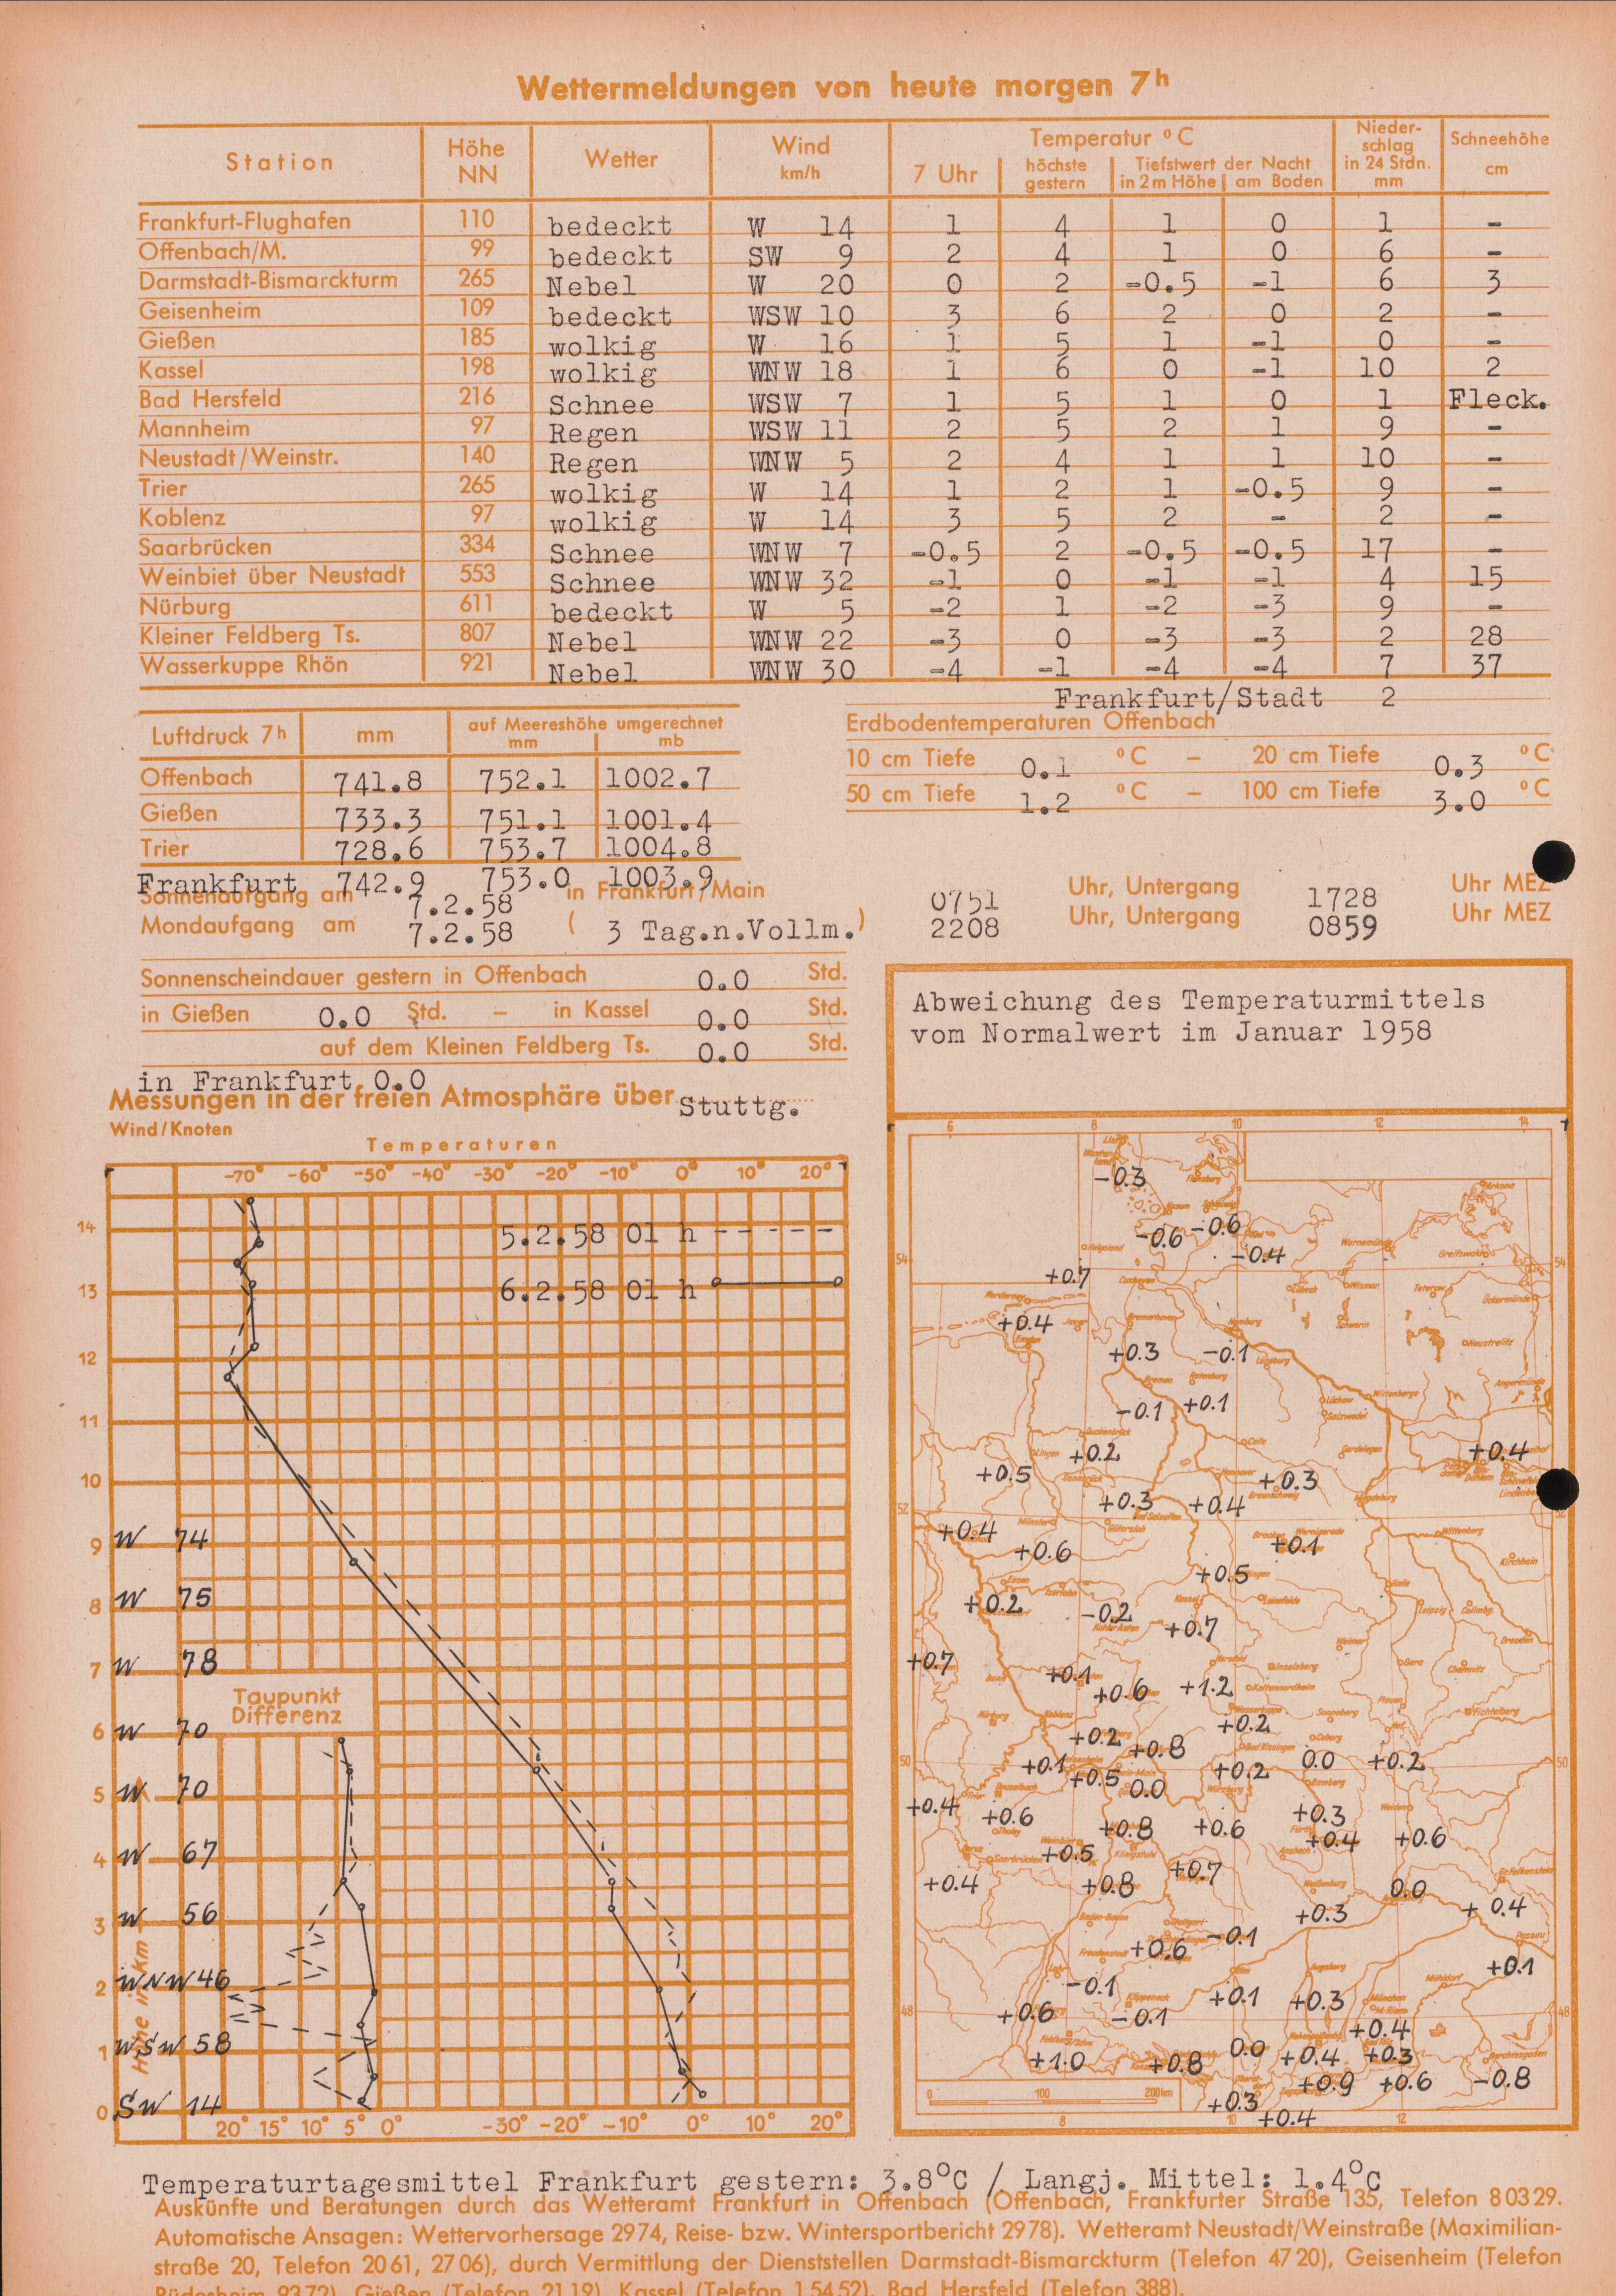 Wettermeldungen von heute morgen 7h
Station Höhe NN Wetter Wind km/h Temperatur °C Nieder-schlag in 24 Stdn. mm Schneehöhe cm
7 Uhr höchste gestern Tiefstwert der Nacht in 2 m Höhe am Boden
Frankfurt-Flughafen 110 bedeckt W 14 1 4 1 0 1 -
Offenbach/M. 99 bedeckt SW 9 2 4 1 0 6 -
Darmstadt-Bismarckturm 265 Nebel W 20 0 2 -0.5 -1 6 3
Geisenheim 109 bedeckt WSW 10 3 6 2 0 2 -
Gießen 185 wolkig W 16 1 5 1 -1 0 -
Kassel 198 wolkig WNW 18 1 6 0 -1 10 2
Bad Hersfeld 216 Schnee WSW 7 1 5 1 0 1 Fleck.
Mannheim 97 Regen WSW 11 2 5 2 1 9 -
Neustadt/Weinstr. 140 Regen WNW 5 2 4 1 1 10 -
Trier 265 wolkig W 14 1 2 1 -0.5 9 -
Koblenz 97 wolkig W 14 3 5 2 - 2 -
Saarbrücken 334 Schnee WNW 7 -0.5 2 -0.5 -0.5 17 -
Weinbiet über Neustadt 553 Schnee WNW 32 -1 0 -1 -1 4 15
Nürburg 611 bedeckt W 5 -2 1 -2 -3 9 -
Kleiner Feldberg Ts. 807 Nebel WNW 22 -3 0 -3 -3 2 28
Wasserkuppe Rhön 921 Nebel WNW 30 -4 -1 -4 -4 7 37
Frankfurt/Stadt 2
Luftdruck 7h mm auf Meereshöhe umgerechnet mm mb
Offenbach 741.8 752.1 1002.7
Gießen 733.3 751.1 1001.4
Trier 728.6 753.7 1004.8
Frankfurt 742.9 753.0 1003.9
Erdbodentemperaturen Offenbach
10 cm Tiefe 0.1 °C - 20 cm Tiefe 0.3 °C
50 cm Tiefe 1.2 °C - 100 cm Tiefe 3.0 °C
Sonnenaufgang am 7.2.58 in Frankfurt/Main 0751 Uhr, Untergang 1728 Uhr MEZ
Mondaufgang am 7.2.58 ( 3 Tag.n.Vollm.) 2208 Uhr, Untergang 0859 Uhr MEZ
Sonnenscheindauer gestern in Offenbach 0.0 Std.
in Gießen 0.0 Std. - in Kassel 0.0 Std.
auf dem Kleinen Feldberg Ts. 0.0 Std.
in Frankfurt 0.0
Messungen in der freien Atmosphäre über Stuttg.
Wind/Knoten
Temperaturen
-70° -60° -50° -40° -30° -20° -10° 0° 10° 20°
14
5.2.58 01 h
13
6.2.58 01 h
12
11
10
9 W 74
8 W 75
7 W 78
Taupunkt Differenz
6 W 70
5 W 70
4 W 67
3 W 56
2 WNW 46
1 WSW 58
0 SW 14
Höhe in km
20° 15° 10° 5° 0° -30° -20° -10° 0° 10° 20°
Abweichung des Temperaturmittels
vom Normalwert im Januar 1958
6 8 10 12 14
-0.3
-0.6 -0.6
-0.4
54 54
+0.7
+0.4
+0.3 -0.1
-0.1 +0.1
+0.2 +0.4
+0.5 +0.3
+0.3 +0.4
52
+0.4 +0.6 +0.1
+0.5
+0.2 -0.2 +0.7
+0.7 +0.1 +0.6 +1.2
+0.2 +0.8 +0.2
50 +0.1 +0.2 0.0 +0.2 50
+0.5 0.0
+0.4 +0.6 +0.8 +0.6 +0.3
+0.5 +0.4 +0.6
+0.4 +0.8 +0.7 0.0
+0.3 +0.4
+0.6 -0.1
-0.1 +0.1
48 +0.6 -0.1 +0.1 +0.3 48
+0.4
+1.0 +0.8 0.0 +0.4 +0.3
+0.9 +0.6 -0.8
+0.3
+0.4
0 100 200km
8 10 12
Temperaturtagesmittel Frankfurt gestern: 3.8°C / Langj. Mittel: 1.4°C
Auskünfte und Beratungen durch das Wetteramt Frankfurt in Offenbach (Offenbach, Frankfurter Straße 135, Telefon 80329.
Automatische Ansagen: Wettervorhersage 2974, Reise- bzw. Wintersportbericht 2978). Wetteramt Neustadt/Weinstraße (Maximilian-
straße 20, Telefon 2061, 2706), durch Vermittlung der Dienststellen Darmstadt-Bismarckturm (Telefon 4720), Geisenheim (Telefon
Rüdesheim 9372), Gießen (Telefon 2119), Kassel (Telefon 15452), Bad Hersfeld (Telefon 388).